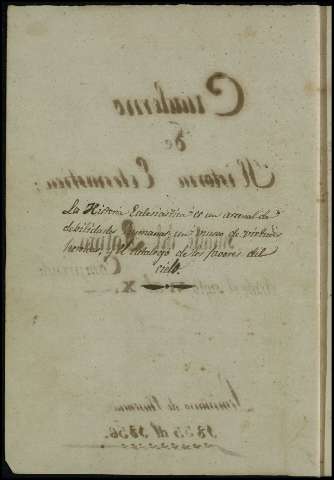 Cuaderno
de
Historia Eclesiástica;
La Historia Eclesiastica es un arsenal de
debilidades humanas, un museo de virtudes
heroicas, y el catalogo de los favores del
cielo.
X.
Seminario de
1855 al 1856.